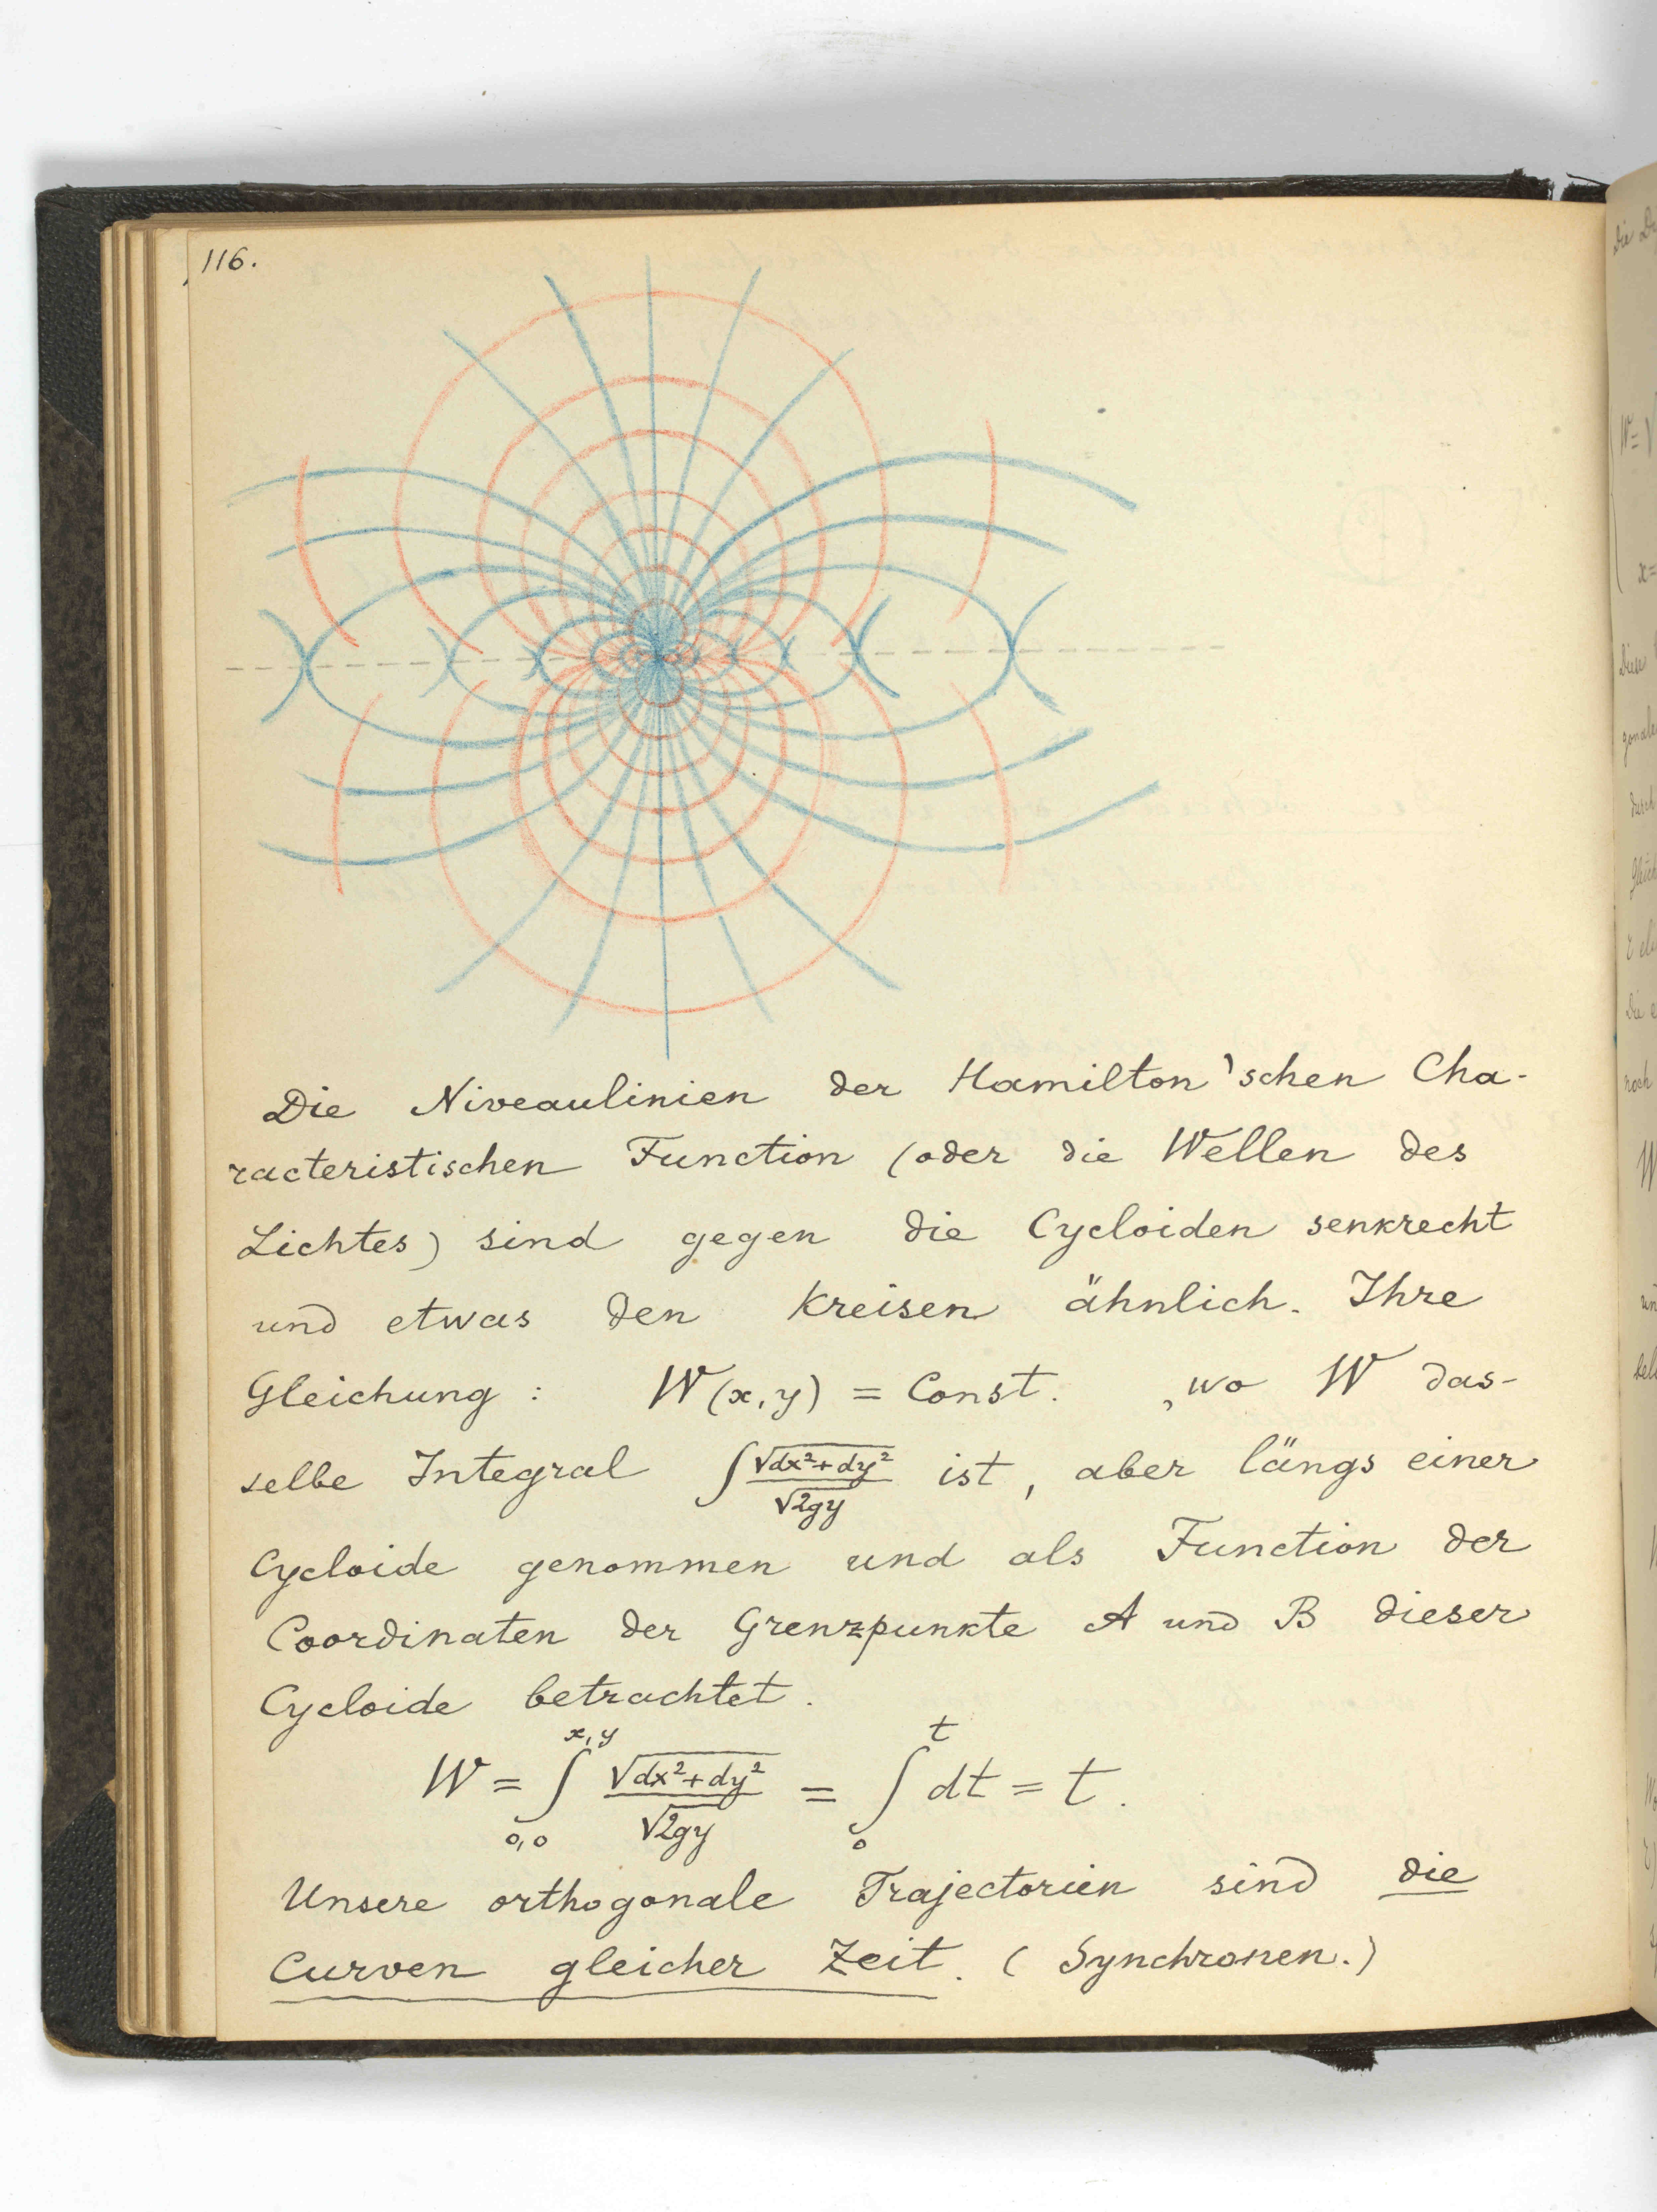 116.
Die Niveaulinien der Hamilton'schen Cha-
racteristischen Function (oder die Wellen des
Lichtes) sind gegen die Cycloiden senkrecht
und etwas den Kreisen ähnlich. Ihre
Gleichung : W(x,y) = Const. , wo W das-
selbe Integral ∫ √dx²+dy² / √2gy ist, aber längs einer
Cycloide genommen und als Function der
Coordinaten der Grenzpunkte A und B dieser
Cycloide betrachtet.
W = ∫_{0,0}^{x,y} √dx²+dy² / √2gy = ∫_0^t dt = t.
Unsere orthogonale Trajectorien sind die
Curven gleicher Zeit. (Synchronen.)
Die
W = √
x =
Diese
durch
die
noch
W